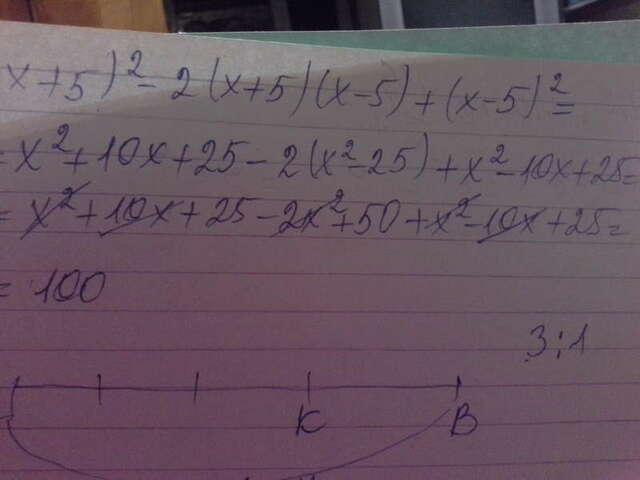 x+5)² - 2(x+5)(x-5)+(x-5)² =
= x²+10x+25-2(x²-25)+x²-10x+25=
= x²+10x+25-2x²+50+x²-10x+25=
= 100
3:1
K B